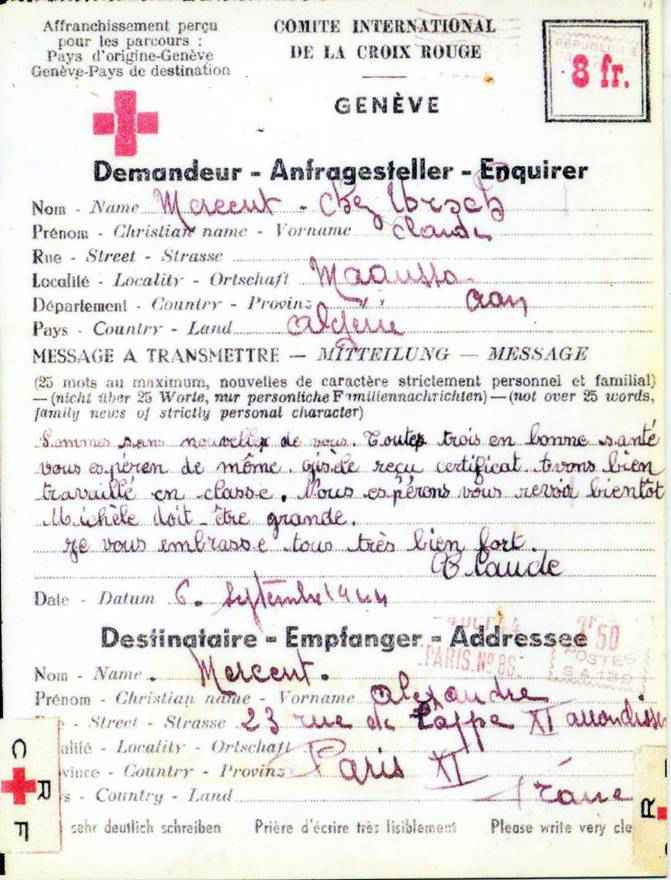 Affranchissement perçu
pour les parcours :
Pays d'origine-Genève
Genève-Pays de destination
COMITE INTERNATIONAL
DE LA CROIX ROUGE
GENÈVE
8 fr.
Demandeur - Anfragesteller - Enquirer
Nom - Name Mercent - chez
Prénom - Christian name - Vorname Claude
Rue - Street - Strasse
Localité - Locality - Ortschaft
Département - Country - Provinz Oran
Pays - Country - Land Algérie
MESSAGE A TRANSMETTRE — MITTEILUNG — MESSAGE
(25 mots au maximum, nouvelles de caractère strictement personnel et familial)
—(nicht über 25 Worte, nur personliche Familiennachrichten)—(not over 25 words,
family news of strictly personal character)
Sommes sans nouvelles de vous. Toutes trois en bonne santé
vous espéren de même. Gisèle reçu certificat. Avons bien
travaillé en classe. Nous espérons vous revoir bientôt
Michèle doit être grande.
Je vous embrasse tous très bien fort.
Claude
Date - Datum 6. Septembre 1944
Destinataire - Empfanger - Addressee
PARIS. No 86.
50
POSTES
Nom - Name. Mercent.
Prénom - Christian name - Vorname Alexandre
e - Street - Strasse 23 rue de Lappe XI arrondiss
alité - Locality - Ortschaft
vince - Country - Provinz Paris XI
s - Country - Land France
C R F
R
sehr deutlich schreiben Prière d'écrire très lisiblement Please write very cle